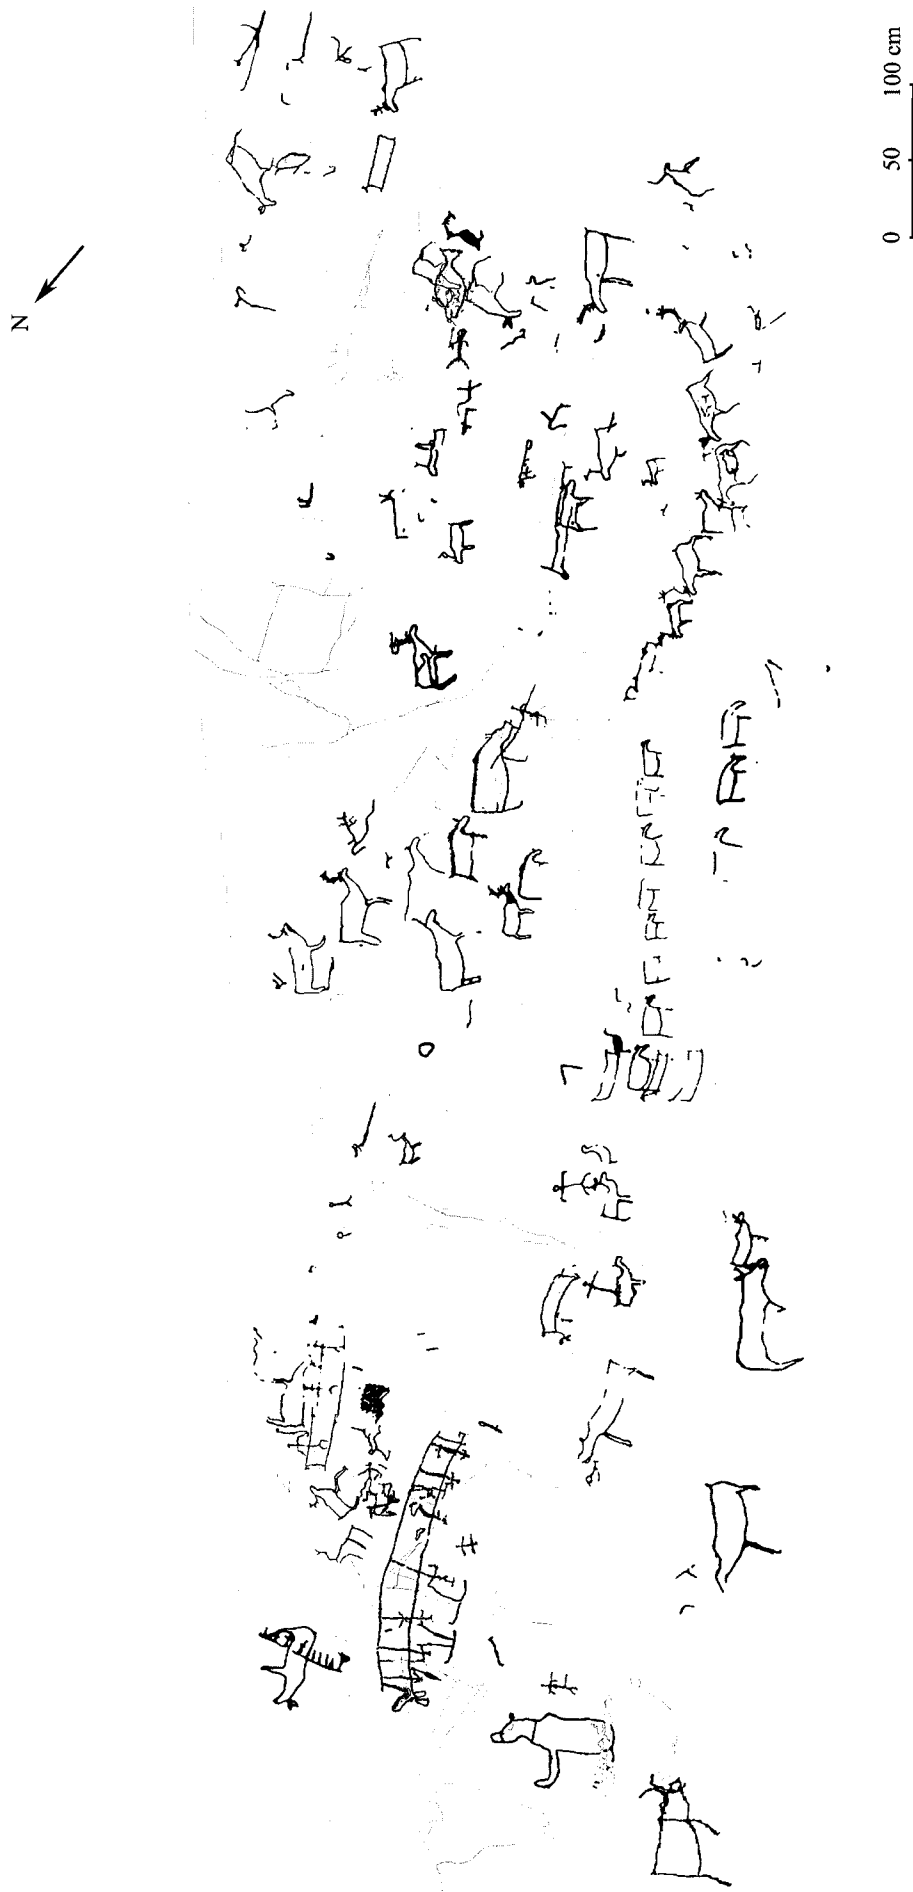 N
0 50 100 cm